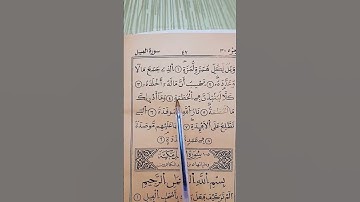 سورة الفيل ٤٧ جزء ٣٠
وَيْلٌ لِّكُلِّ هُمَزَةٍ لُّمَزَةٍ ۝١ الَّذِي جَمَعَ مَالًا
وَعَدَّدَهُ ۝٢ يَحْسَبُ أَنَّ مَالَهُ أَخْلَدَهُ ۝٣
كَلَّا لَيُنْبَذَنَّ فِي الْحُطَمَةِ ۝٤ وَمَا أَدْرٰىكَ
مَا الْحُطَمَةُ ۝٥ نَارُ اللَّهِ الْمُوقَدَةُ ۝٦ الَّتِي
تَطَّلِعُ عَلَى الْأَفْئِدَةِ ۝٧ إِنَّهَا عَلَيْهِمْ مُّؤْصَدَةٌ
۝٨ فِي عَمَدٍ ۝٩
سُورَةُ
بِسْمِ اللَّهِ الرَّحْمَٰنِ الرَّحِيمِ
أَلَمْ تَرَ كَيْفَ فَعَلَ بِأَصْحَابِ الْفِيلِ ۝١